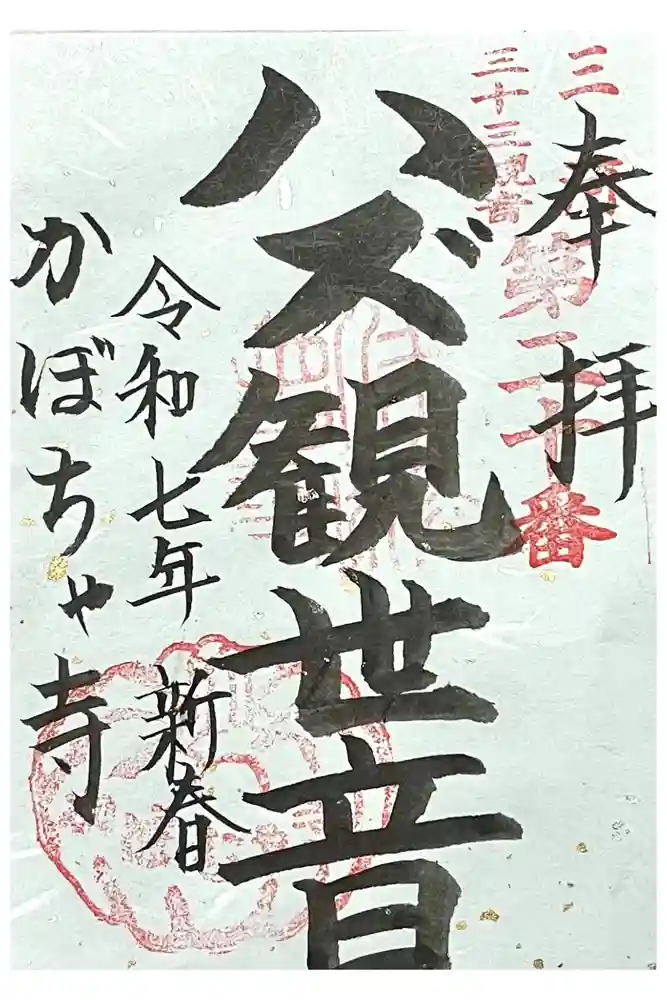 奉拝
三
三十三観音
第二十番
ハズ観世音
令和七年 新春
かぼちゃ寺